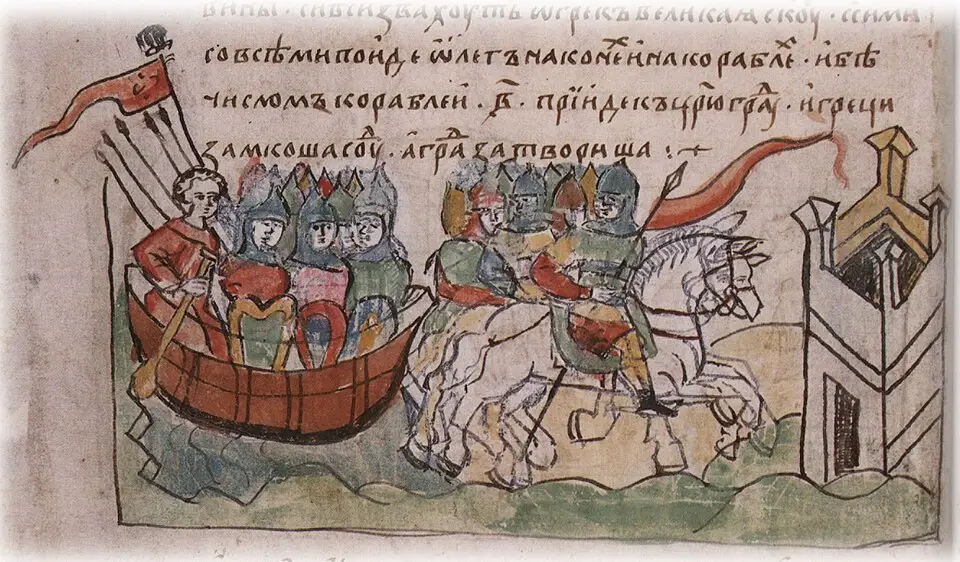 вины · си вси звахоуть ѿ грекъ великаꙗ скоу · с сими
со всѣми поиде ѡлегъ на конеⷯ и на корабле · и бѣ
числомъ кораблеи · в҃ · прїиде къ цр҃югра · и греци
замкоша соуⷣ · а граⷣ затвориша :·